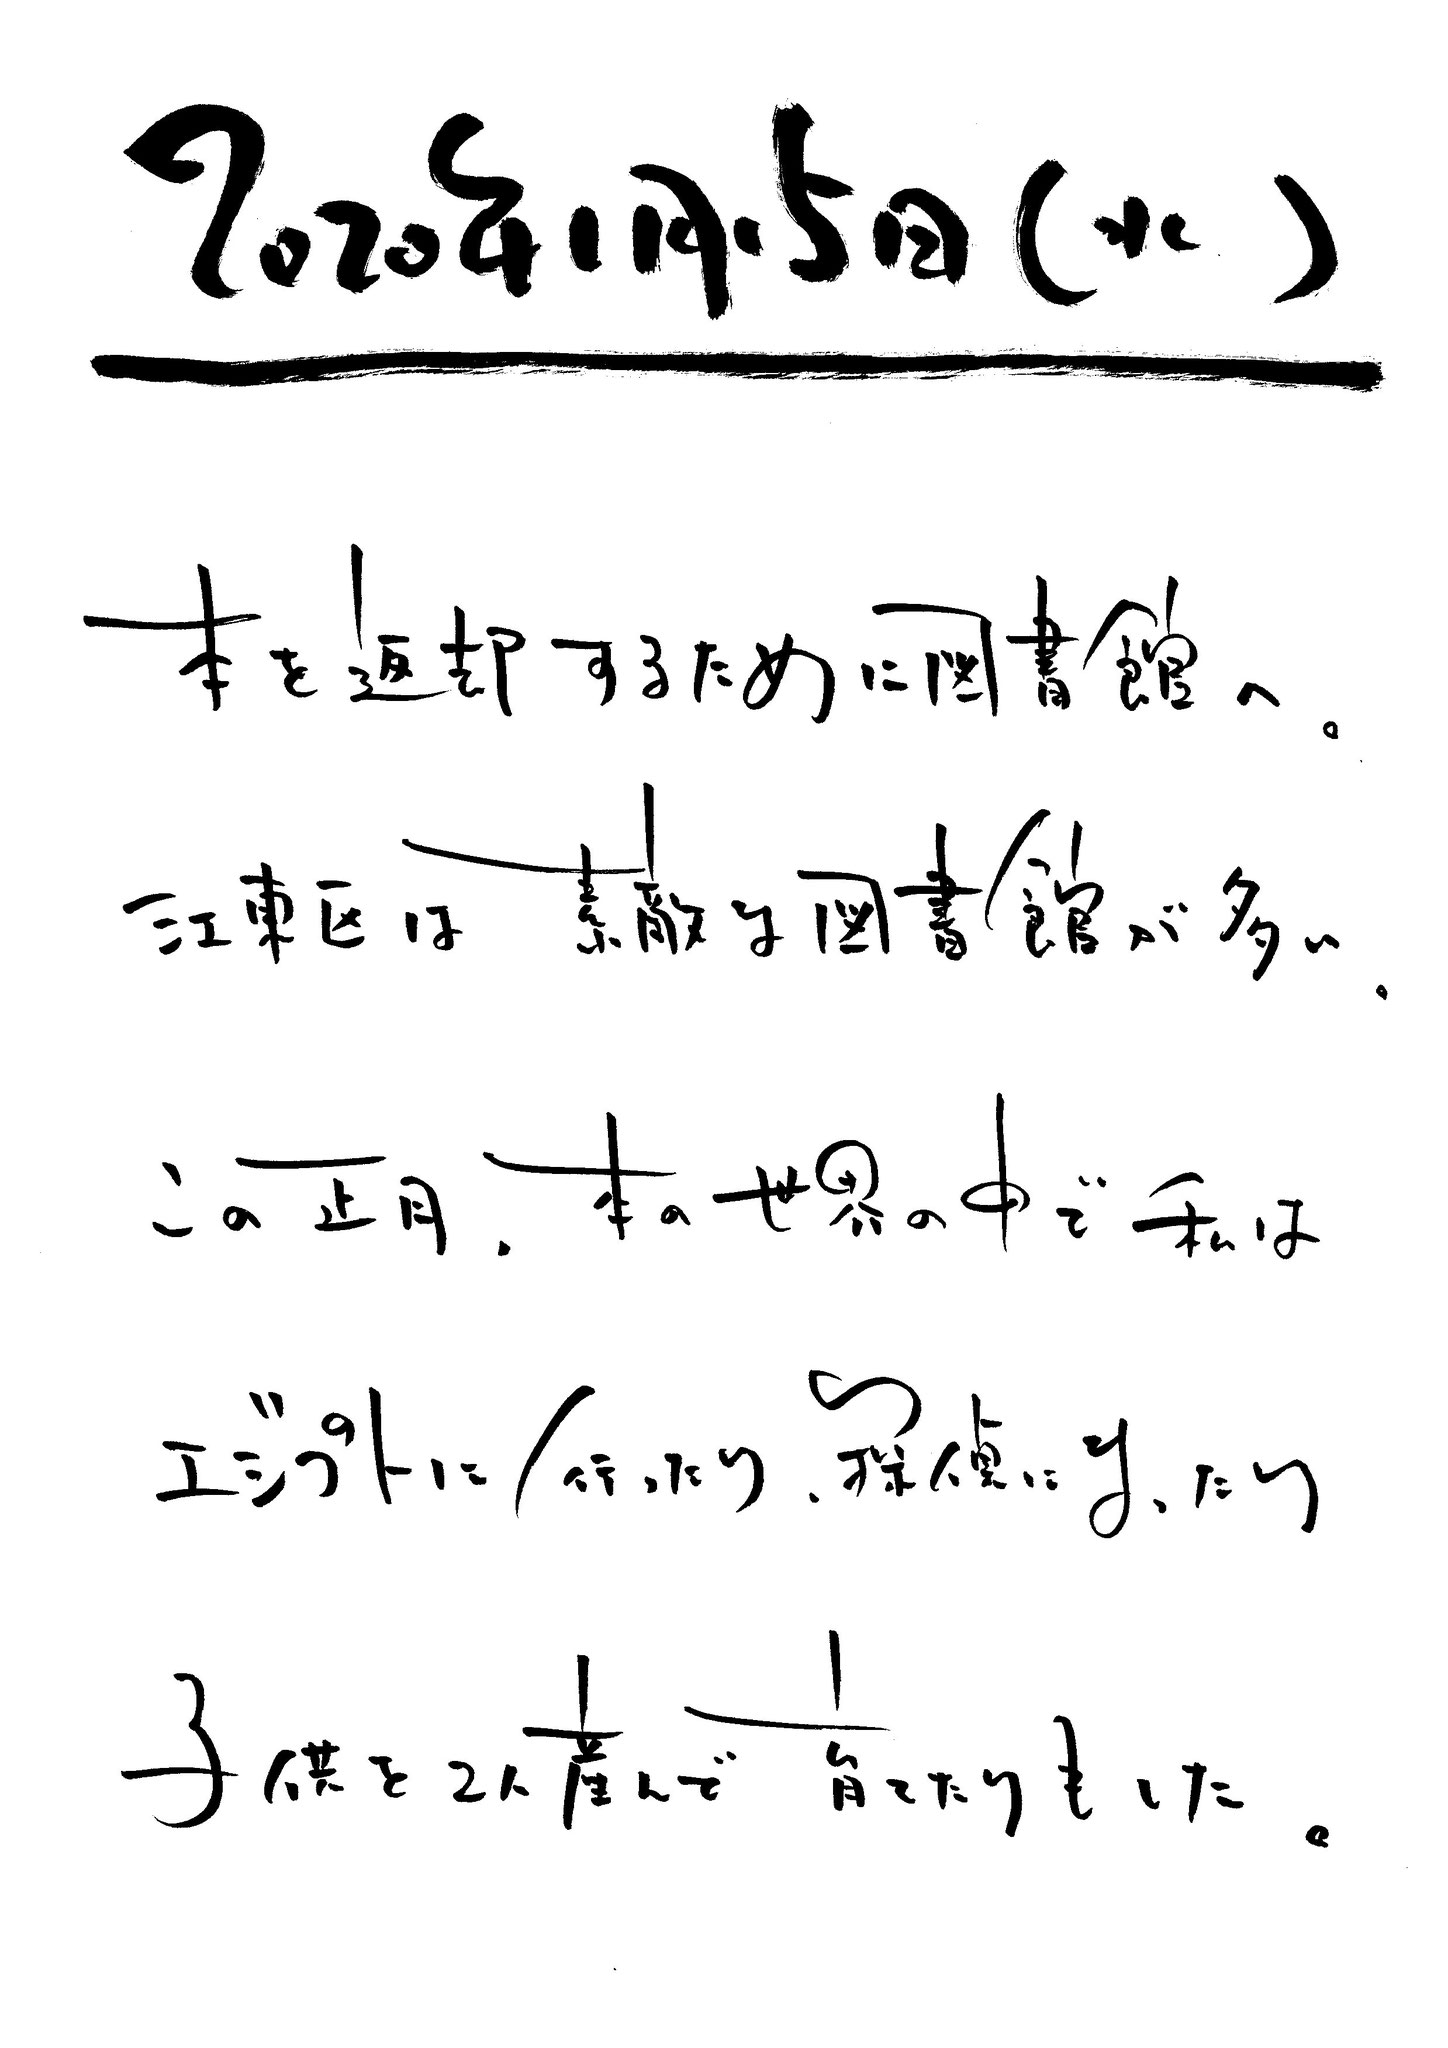 2020年1月15日(水)
本を返却するために図書館へ。
江東区は素敵な図書館が多い。
この正月、本の世界の中で私は
エジプトに行ったり、探偵になったり
子供を2人産んで育てたりもした。